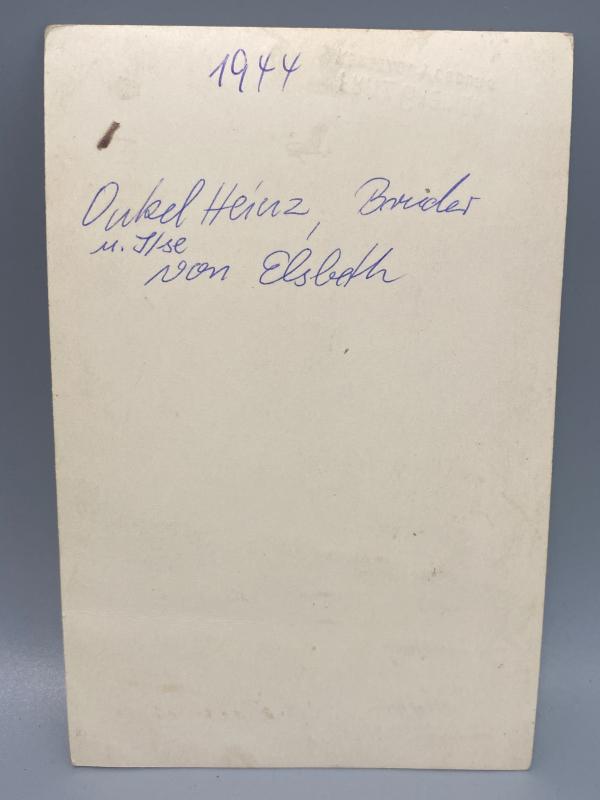 1944
Onkel Heinz, Bruder
u. Ilse
von Elsbeth